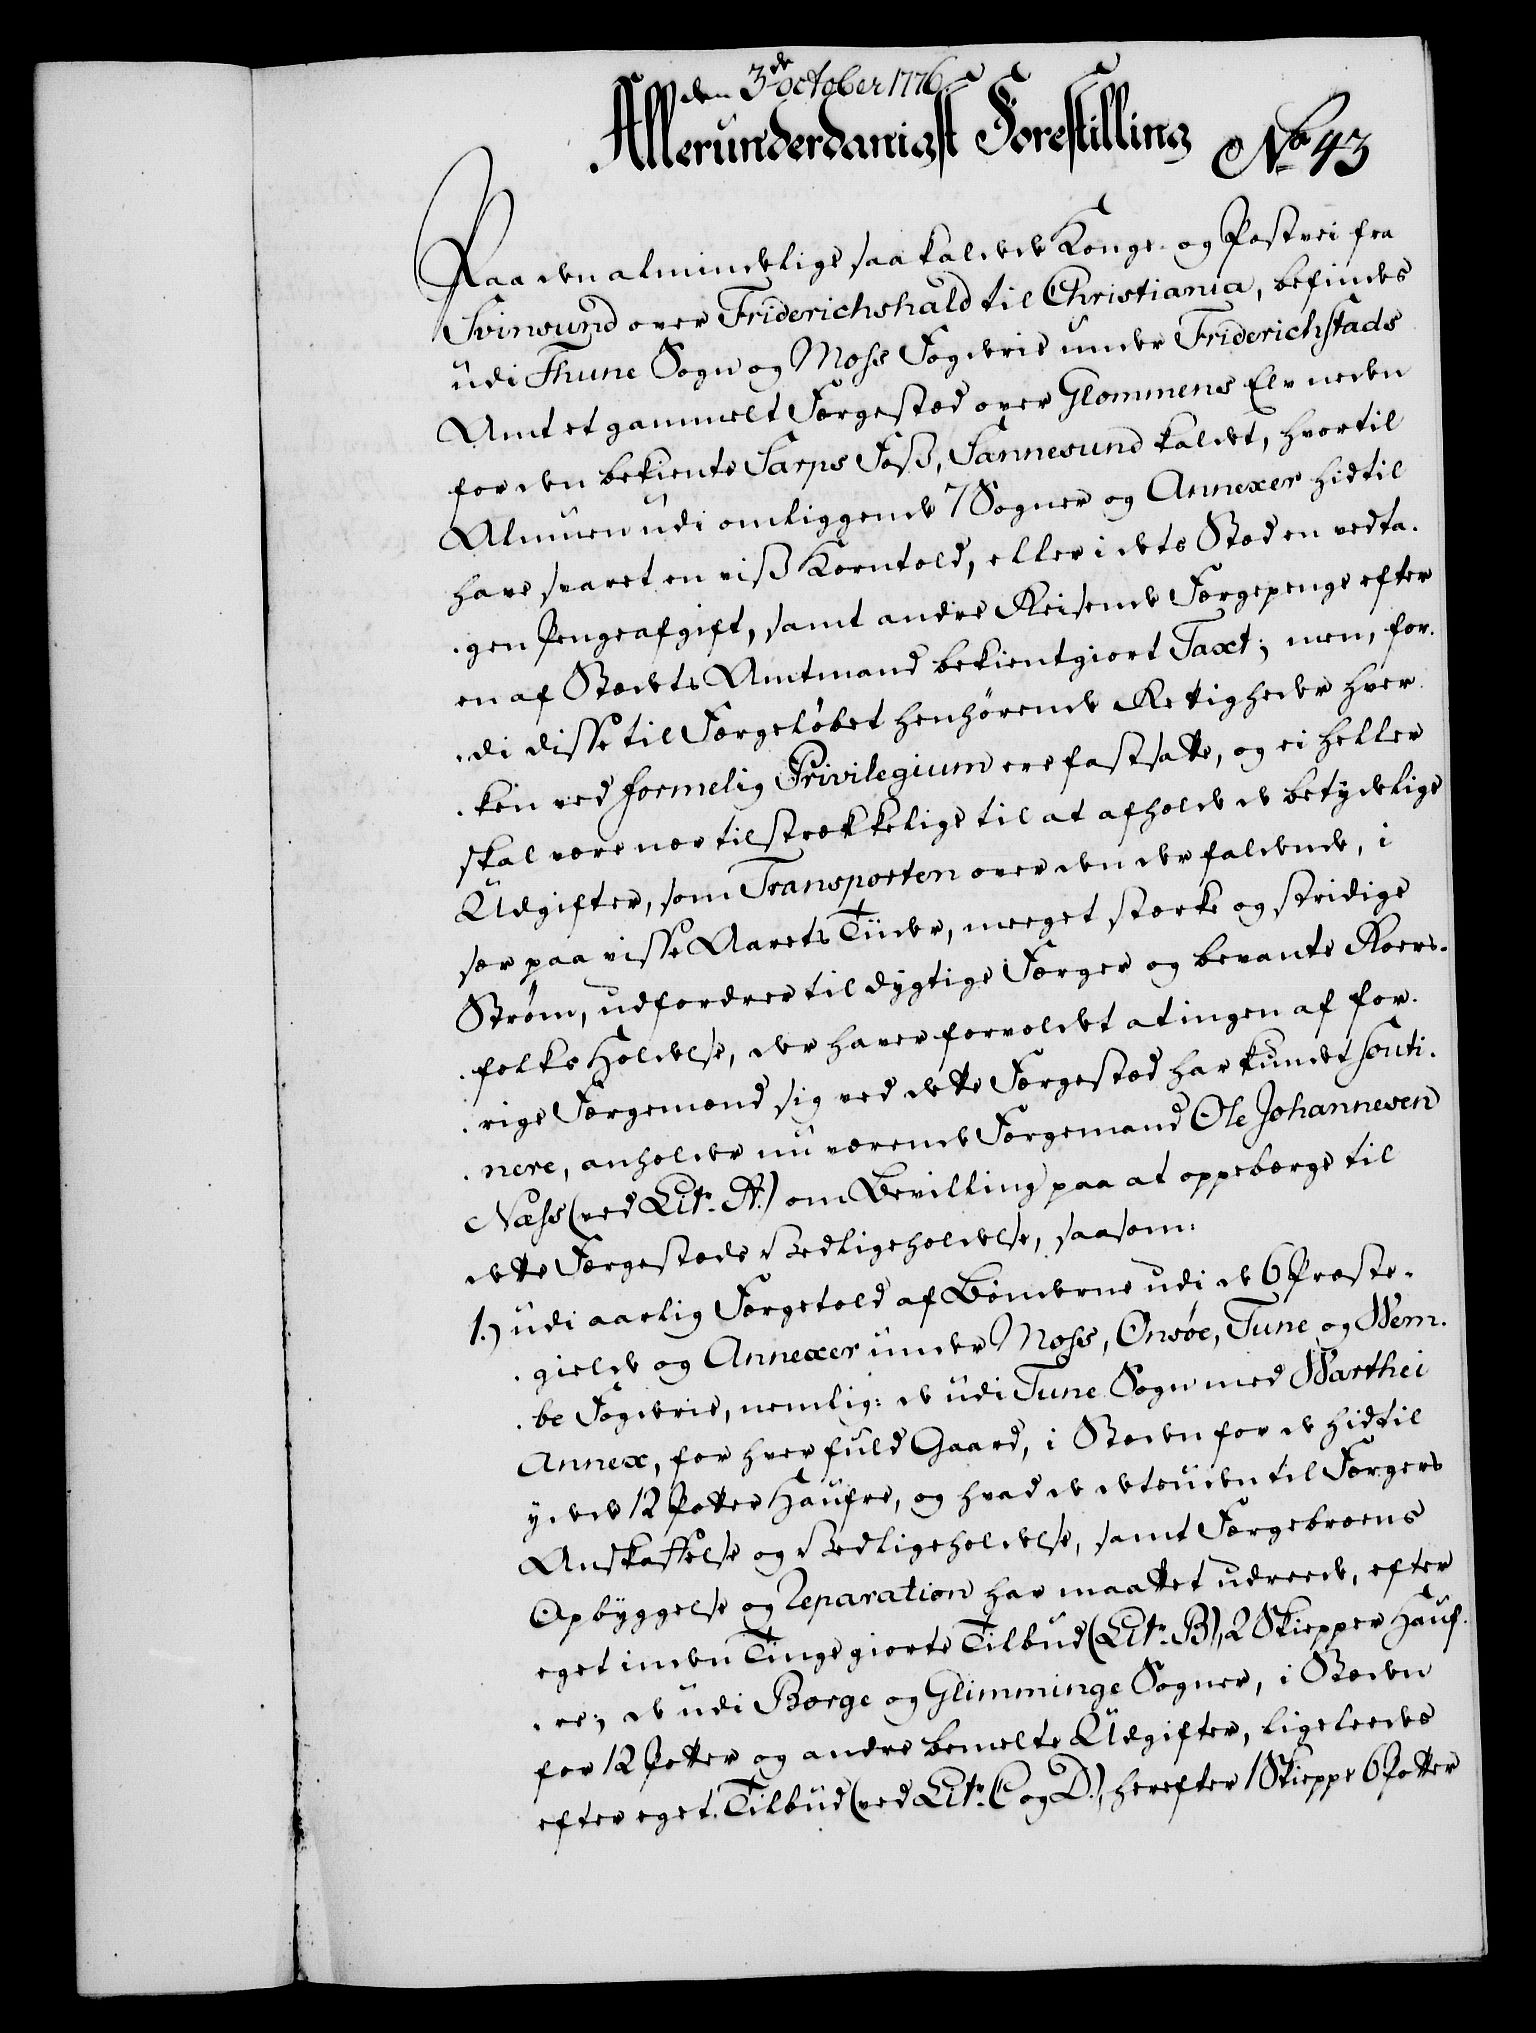 den 3de October 1776
Allerunderdanigst Forestilling No 43
Paa den almindelige saa kaldede Konge- og Postvei fra
Svinesund over Friderichshald til Christiania, befindes
udi Thune Sogn og Moss Fogderie under Friderichstads
Amt et gammelt Færgestæd over Glommens Elv neden
for den bekiente Sarps Foss, Sannesund kaldet, hvortil
Almuen udi omliggende 7 Sogner og Annexer hidtil
have svaret en viss Korntold, eller i dets Stæd en vedta-
-gen Pengeafgift, samt andre Reisende Færgepenge efter
en af Stædets Amtmand bekientgiort Taxt; men, for-
-di disse til Færgeløbet henhørende Rettigheder hver-
-ken ved formelig Privilegium ere fastsatte, og ei heller
skal være nær tilstrækkelige til at afholde de betydelige
Udgifter, som Transporten over den der faldende, i
sær paa visse Aarets Tiider, meeget stærke og stridige
Strøm, udfordrer til dygtige Færger og bevante Roers-
-folks Holdelse, der haver forvoldet at ingen af for-
-rige Færgemænd sig ved dette Færgestæd har kundet souti-
-nere, anholder nu værende Færgemand Ole Johannesen
Næss (ved Litr. A.) om Bevilling paa at oppebærge til
dette Færgestæds Vedligeholdelse, saasom:
1.) udi aarlig Færgetold af Bønderne udi de 6 Præste-
-gielde og Annexer under Moss, Onsøe, Tune og Wem-
-be Fogderie, nemlig: de udi Tune Sogn med Warthei
Annex, for hver fuld Gaard, i Stæden for de hidtil
ydede 12 Potter Haufre, og hvad de detsuden til Færgers
Anskaffelse og Vedligeholdelse, samt Færgebroens
Opbyggelse og Reparation har maattet udreede, efter
eget inden Tinge giorte Tilbud (Litr. B), 2 Skiepper Hauf-
-re; de udi Borge og Glimminge Sogner, i Stæden
for 12 Potter og andre bemelte Udgifter, ligeleedes
efter eget Tilbud (ved Litr. C og D.), herefter 1 Skieppe 6 Potter